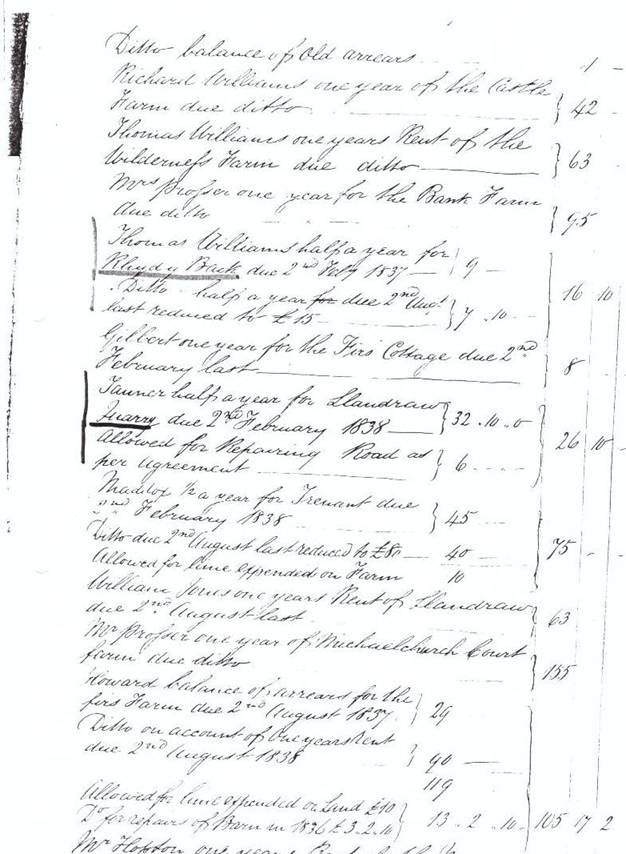 Ditto balance of Old arrears 1 -
Richard Williams one year of the Castle
Farm due ditto } 42
Thomas Williams one years Rent of the
Wilderness Farm due ditto } 63
Mrs Prosser one year for the Bank Farm
due ditto } 95
Thomas Williams half a year for
Rhyd y Back due 2nd Feby 1837 } 9 -
Ditto half a year for due 2nd Augt
last reduced to £15 } 7 . 10 - } 16 10
Gilbert one year for the Firs Cottage due 2nd
February last 8
Tanner half a year for Llandraw
Quarry due 2nd February 1838 } 32 . 10 . 0
Allowed for Repairing Road as
per agreement } 6 - } 26 10 -
Maddox ½ a year for Trenant due
2nd February 1838 } 45
Ditto due 2nd August last reduced to £80 40 -
Allowed for lime expended on Farm 10 } 75 -
William Jones one years Rent of Llandraw
due 2nd August last } 63
Mr Prosser one year of Michaelchurch Court
farm due ditto } 155
Howard balance of arrears for the
firs Farm due 2nd August 1837 } 29
Ditto on account of One years Rent
due 2nd August 1838 } 90 -
119
Allowed for lime expended on Land £10
Do for repairs of Barn in 1836 £3.2.10 } 13 . 2 . 10 } 105 17 2
Mr Hopton one year's